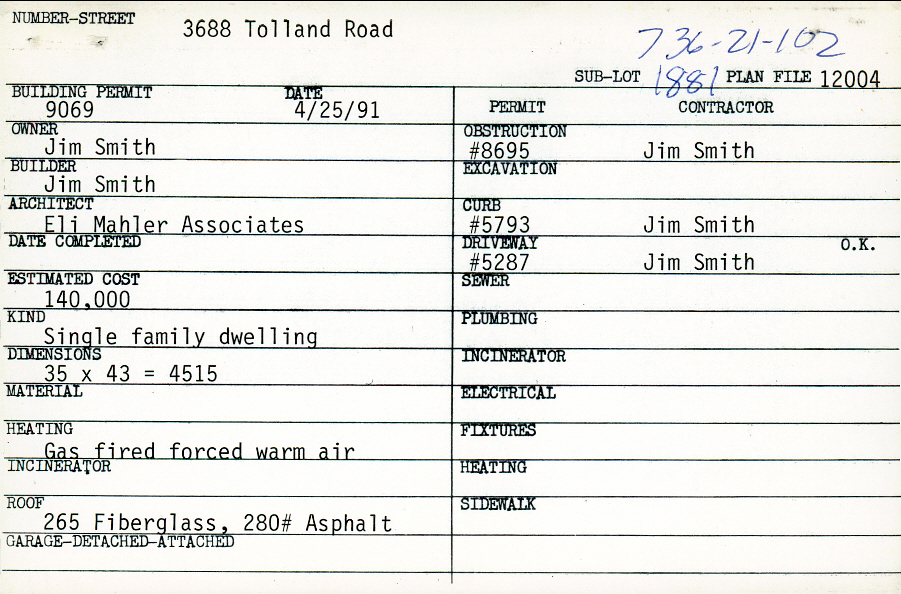 NUMBER-STREET
3688 Tolland Road
736-21-102
SUB-LOT 1881 PLAN FILE 12004
BUILDING PERMIT DATE
9069 4/25/91
PERMIT CONTRACTOR
OWNER
Jim Smith
BUILDER
Jim Smith
ARCHITECT
Eli Mahler Associates
DATE COMPLETED
ESTIMATED COST
140,000
KIND
Single family dwelling
DIMENSIONS
35 x 43 = 4515
MATERIAL
HEATING
Gas fired forced warm air
INCINERATOR
ROOF
265 Fiberglass, 280# Asphalt
GARAGE-DETACHED-ATTACHED
OBSTRUCTION
#8695 Jim Smith
EXCAVATION
CURB
#5793 Jim Smith
DRIVEWAY O.K.
#5287 Jim Smith
SEWER
PLUMBING
INCINERATOR
ELECTRICAL
FIXTURES
HEATING
SIDEWALK